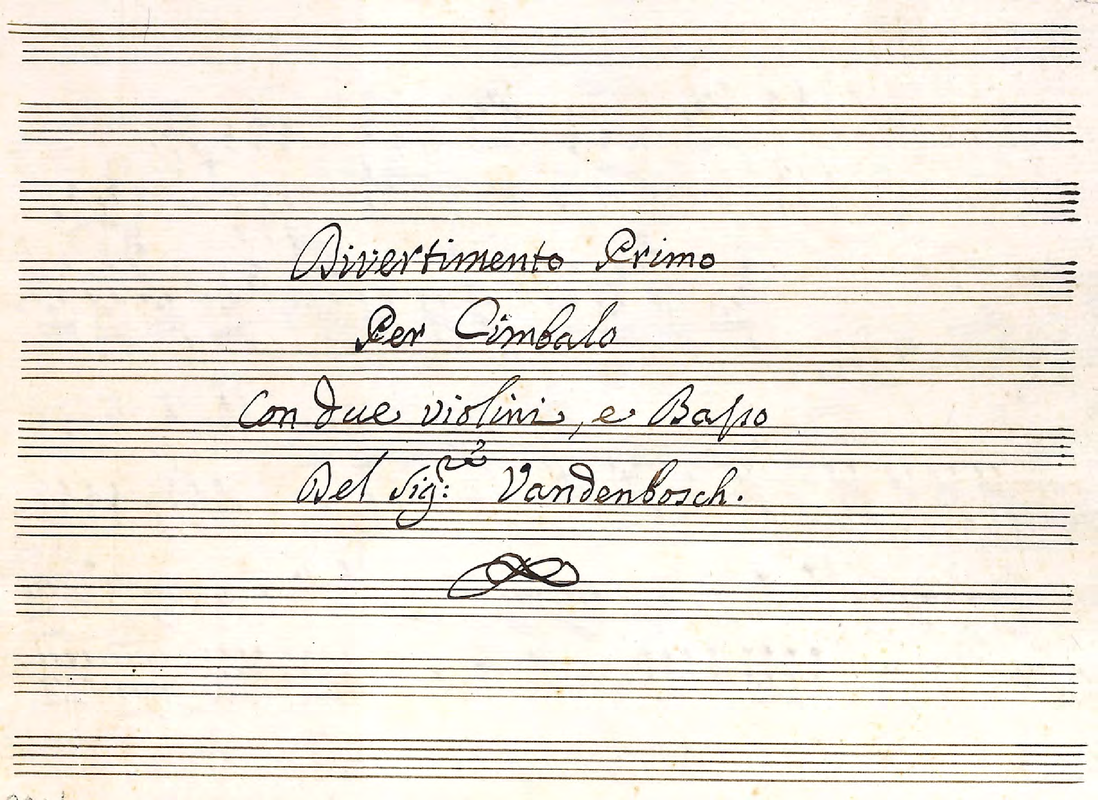 Divertimento Primo
Per Cimbalo
Con due violini, e Baſso
Del Sig:re Vandenbosch.